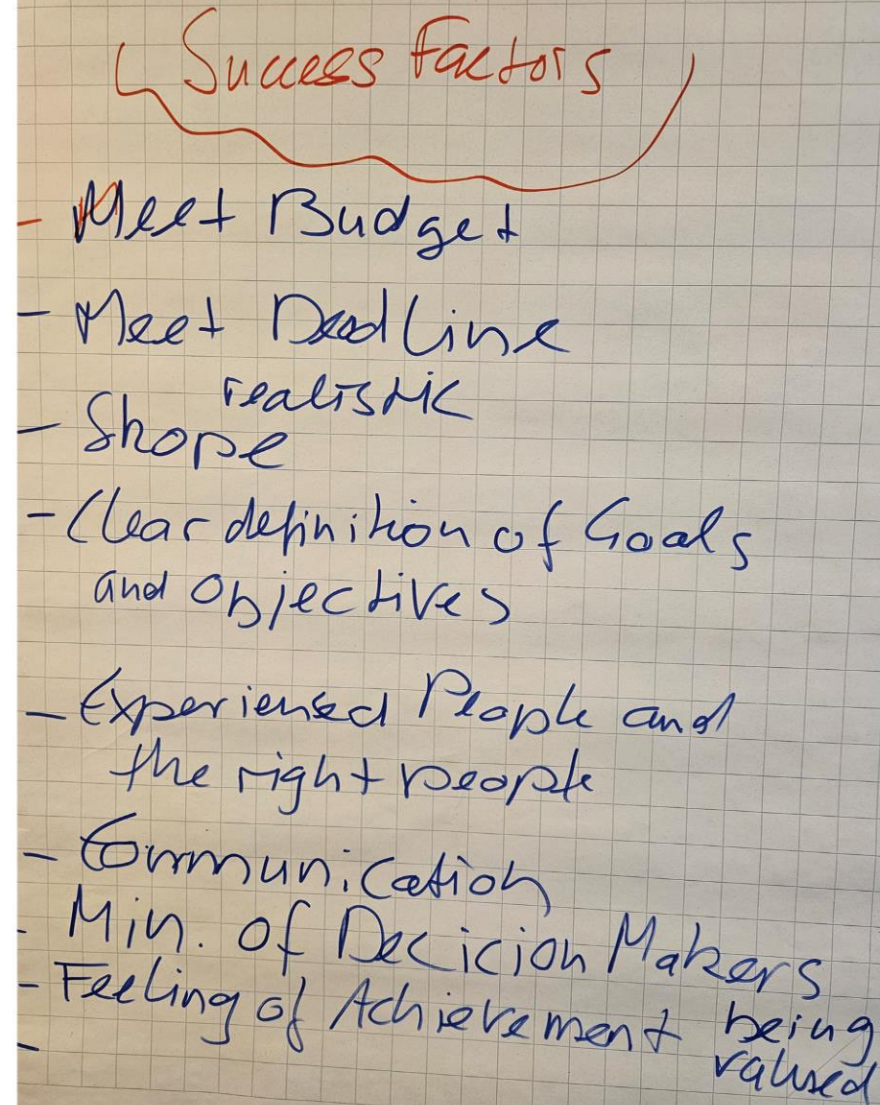 Success Factors
- Meet Budget
- Meet DeadLine
realistic
- Skope
- Clear definition of Goals
and Objectives
- Experiensed People and
the right people
- Communication
- Min. of Decicion Makers
- Feeling of Achievement being
valued
-